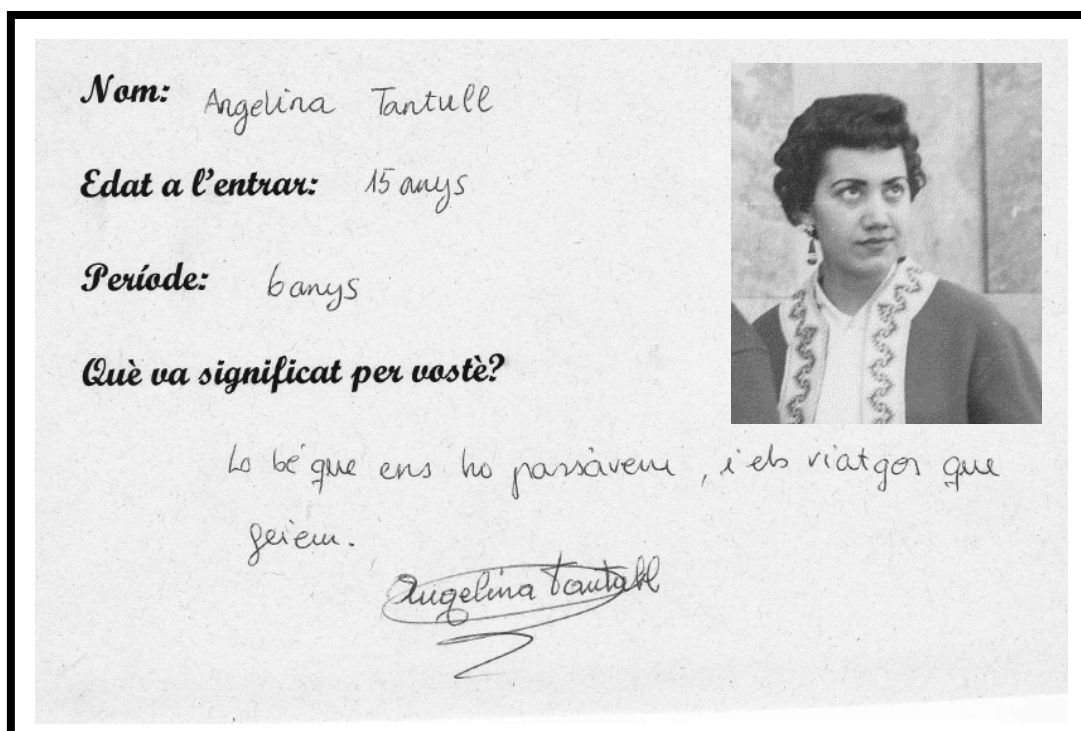 Nom: Angelina Tantull
Edat a l'entrar: 15 anys
Període: 6 anys
Què va significat per vostè?
Lo bé que ens ho passàvem, i els viatges que
feiem.
Angelina Tantull